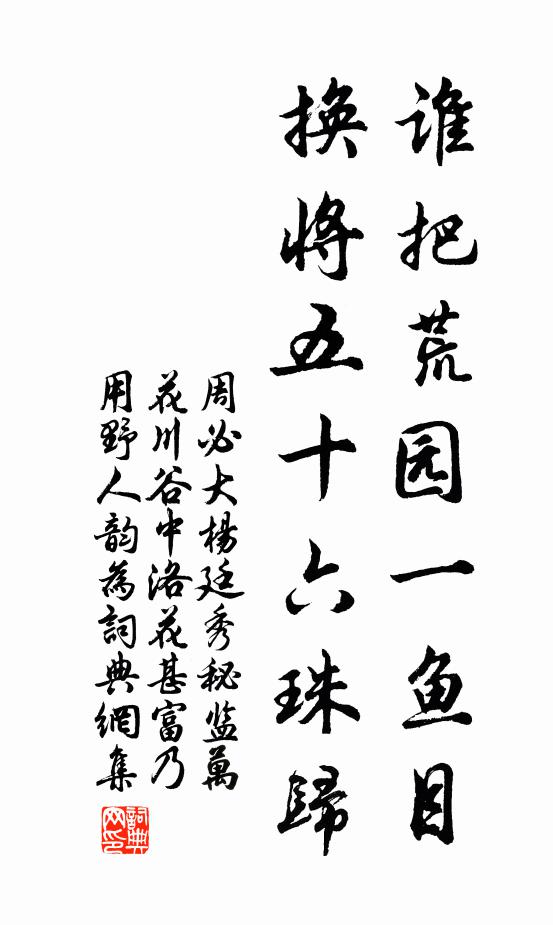 谁把荒园一鱼目
换将五十六珠歸
周必大楊廷秀秘监萬
花川谷中洛花甚富乃
用野人韵為詞典網集
詞典网印